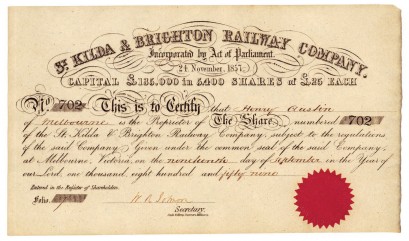 St. KILDA & BRIGHTON RAILWAY COMPANY.
Incorporated by Act of Parliament.
24 November, 1857.
CAPITAL £135,000 in 5,400 SHARES of £25 EACH
No. 702 This is to Certify that Henry Austin
of Melbourne is the Proprietor of The Share numbered 702
of the St. Kilda & Brighton Railway Company, subject to the regulations
of the said Company; Given under the common seal of the said Company,
at Melbourne, Victoria, on the nineteenth day of September in the Year of
our Lord, one thousand, eight hundred and fifty nine
Entered in the Register of Shareholders.
Folio
Secretary.